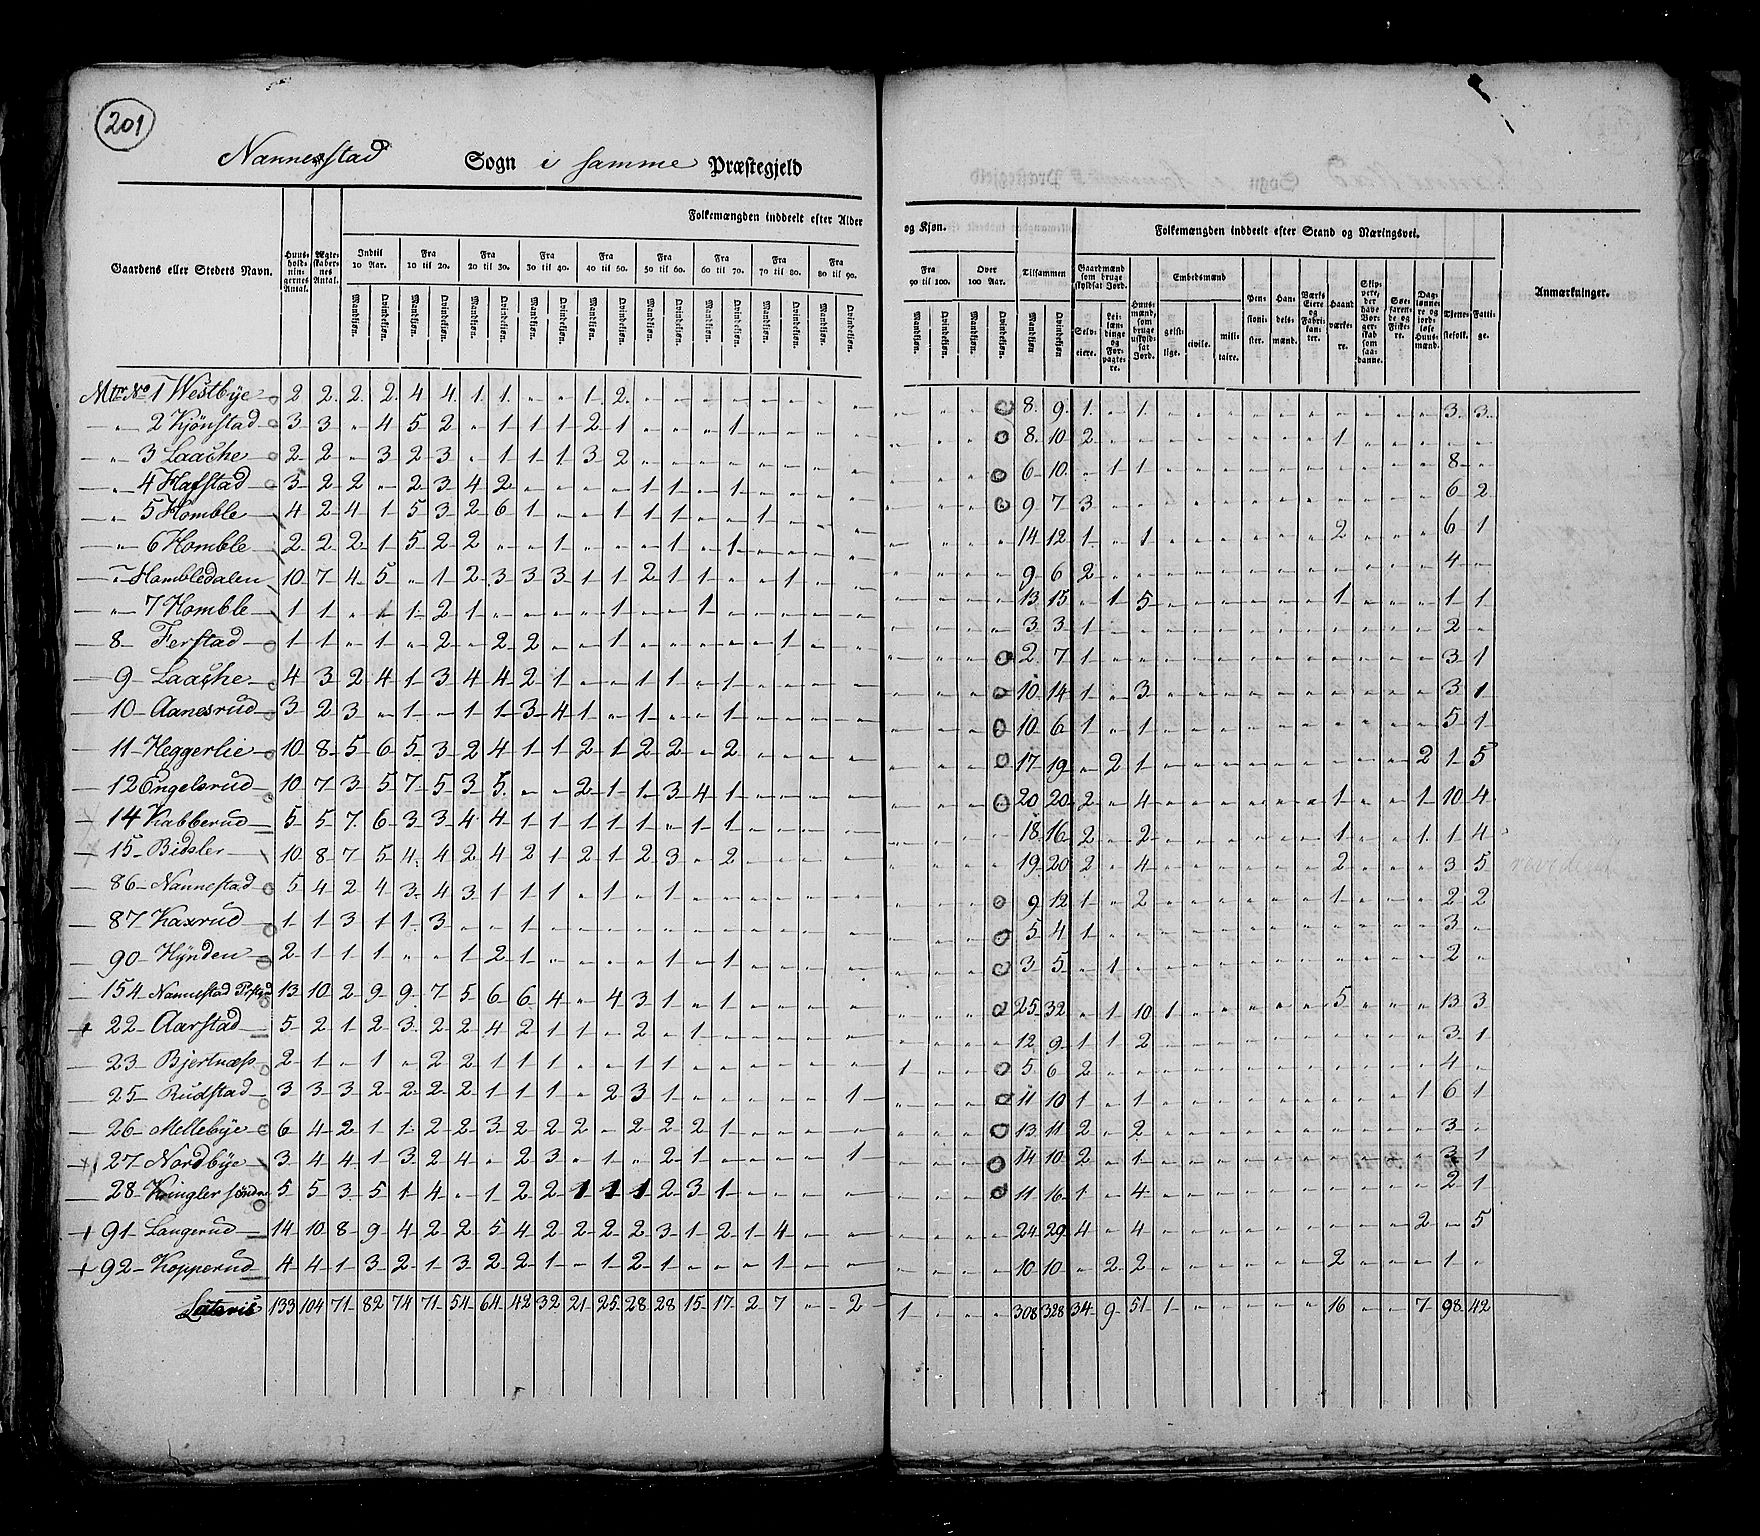 201
Nannestad Sogn i samme Præstegjeld
Gaardens eller Stedets Navn.
Huus-holdnin-gernes Antal.
Ægte-skabernes Antal.
Folkemængden inddeelt efter Alder og Kjøn.
Indtil 10 Aar. Fra 10 til 20. Fra 20 til 30. Fra 30 til 40. Fra 40 til 50. Fra 50 til 60. Fra 60 til 70. Fra 70 til 80. Fra 80 til 90. Fra 90 til 100. Over 100 Aar. Tilsammen
Mandkjøn. Qvindekjøn.
Folkemængden inddeelt efter Stand og Næringsvei.
Gaardmænd som bruge skyldsat Jord.
Selveiere.
Leilændinge og Forpagtere.
Huusmænd, som bruge uskyldsat Jord.
Embedsmænd
geistlige. civile. militaire.
Pensionister.
Handelsmænd.
Værks Eiere og Fabrikanter.
Haandværkere.
Daglønnere og jordløse Huusmænd.
Tjenestefolk.
Fattige.
Anmærkninger.
Mtr No 1 Westbÿe 2 2 2 2 4 4 1 1 " " 1 2 " " " " " " " " " " " " 8 9 1 " 1 " " " " " " " " " " 3 3
" 2 Kjönstad 3 3 " 4 5 2 " 1 1 1 2 1 " " " 1 " " " " " " " " 8 10 2 " " " " " " " " 1 " " " " "
" 3 Laache 2 2 " 3 2 3 " 1 1 1 3 2 " " " " " " " " " " " " 6 10 " 1 1 " " " " " " " " " " 8 "
" 4 Hafstad 3 2 2 " 2 3 4 2 " " " " 1 1 " 1 " " " " " " " " 9 7 3 " " " " " " " " " " " " 6 2
" 5 Homble 4 2 4 1 5 3 2 6 1 " " 1 1 1 " " 1 " " " " " " " 14 12 1 " 1 " " " " " " 2 " " " 6 1
" 6 Homble 2 2 2 1 5 2 2 " " 1 " " " 1 " 1 " " " " " " " " 9 6 2 " " " " " " " " " " " " 4 "
" Hombledalen 10 7 4 5 " 1 2 3 3 3 1 1 2 1 1 " " 1 " " " " " " 13 15 " 1 5 " " " " " " 1 " " " 1 1
" 7 Homble 1 1 " 1 1 2 1 " " " " 1 " " 1 " " " " " " " " " 3 3 1 " " " " " " " " " " " " 2 "
8 Ferstad 1 1 " 1 " 2 " 2 2 " " 1 " " " " " 1 " " " " " " 2 7 1 " " " " " " " " " " " " 3 1
9 Laache 4 3 2 4 1 3 4 4 2 1 " " 1 1 " 1 " " " " " " " " 10 14 1 " 3 " " " " " " " " " " 3 1
10 Aanesrud 3 2 3 " 1 " 1 1 3 4 1 " 1 " " 1 " " " " " " " " 10 6 1 " 1 " " " " " " " " " " 5 1
11 Heggerlie 10 8 5 6 5 3 2 4 1 1 2 1 2 2 " 2 " " " " " " " " 17 19 " 2 1 " " " " " " " " " 2 1 5
12 Engelsrud 10 7 3 5 7 5 3 5 " " 2 1 1 3 4 1 " " " " " " " " 20 20 2 " 4 " " " " " " 1 " " 1 10 4
14 Kabberud 5 5 7 6 3 3 4 4 1 1 1 1 1 " 1 1 " " " " " " " " 18 16 2 " 2 " " " " " " 1 " " 1 1 4
15 Bidsler 10 8 7 5 4 4 2 4 2 1 2 1 2 3 " 2 " " " " " " " " 19 20 2 " 4 " " " " " " 2 " " " 3 5
86 Nannestad 5 4 2 4 3 4 3 1 1 1 " 1 " 1 " " " " " " " " " " 9 12 1 " 2 " " " " " " 1 " " " 2 2
87 Kaxrud 1 1 3 1 1 3 " " 1 " " " " " " " " " " " " " " " 5 4 1 " " " " " " " " " " " " 3 "
90 Hÿnden 2 1 1 1 " " 1 2 1 " " " " 1 " 1 " " " " " " " " 3 5 " 1 " " " " " " " " " " " 2 "
154 Nannestad Præstgd 13 10 2 9 9 7 5 6 6 4 " 4 3 1 " 1 " " " " " " " " 25 32 " 1 10 1 " " " " " 5 " " " 13 3
+ 22 Aarstad 5 2 1 2 3 2 2 4 2 1 1 " 2 " 1 " " " " " " " " " 12 9 1 1 2 " " " " " " " " " " 3 1
23 Bjertnæss 2 1 " 1 " 2 2 1 1 1 " " 1 1 " " " " " " 1 " " " 5 6 2 " " " " " " " " " " " " 4 "
25 Rudstad 3 3 3 2 2 2 2 1 1 1 " 2 3 1 " " " " " 1 " " " " 11 10 1 " 1 " " " " " " " " " 1 6 1
26 Mellebÿe 6 4 2 1 1 2 2 3 2 2 2 " 2 2 2 1 " " " " " " " " 13 11 2 " 2 " " " " " " " " " " 3 "
+ 27 Nordbÿe 3 4 4 1 3 2 4 " 2 3 " 1 " 2 1 " " " " 1 " " " " 14 10 2 " 1 " " " " " " " " " " 3 1
28 Kringler söndre 5 5 3 5 1 4 " 1 2 2 1 1 1 2 3 1 " " " " " " " " 11 16 1 " 4 " " " " " " " " " " 2 1
+ 91 Langerud 14 10 8 9 4 2 2 5 4 2 2 2 2 3 1 2 1 4 " " " " " " 24 29 4 " 4 " " " " " " " " " 2 " 5
+ 92 Kopperud 4 4 1 3 2 1 3 2 2 1 " 1 2 1 " " " 1 " " " " " " 10 10 " 2 2 " " " " " " 2 " " " 1 "
Lateris 133 104 71 82 74 71 54 64 42 32 21 25 28 28 15 17 2 7 " 2 1 " " " 308 328 34 9 51 1 " " " " " 16 " " 7 98 42